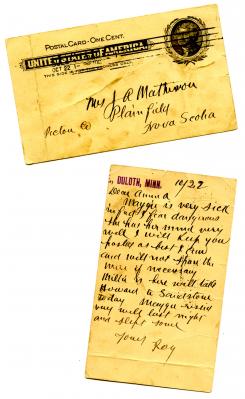 POSTAL CARD - ONE CENT.
UNITED STATES OF AMERICA
OCT 22
THIS SIDE IS FOR ADDRESS ONLY.
Mrs J A Matheson
Plainfield
Pictou Co
Nova Scotia
DULUTH, MINN. 10/22
Dear Anna
Maggie is very sick
in fact I fear dangerous
She has her mind very
well I will keep you
posted as best I can
and will not spare the
wire if necessary
Millie is here will take
Howard to Sandstone
today Maggie rested
very well last night
and slept some
Yours Roy